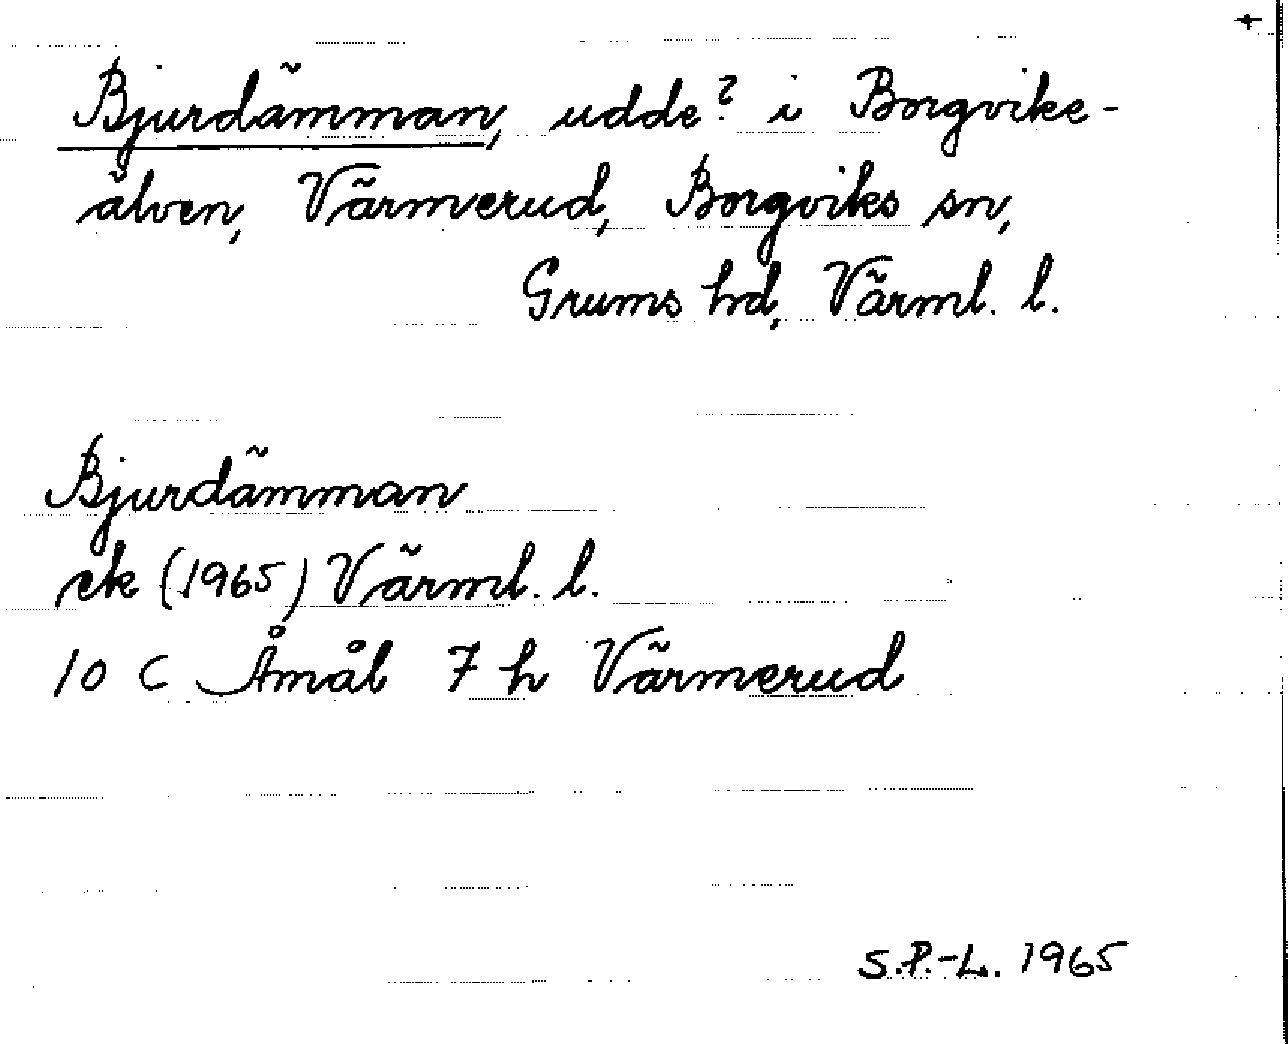 +
Bjurdämman, udde? i Borgvike-
älven, Värmerud, Borgviks sn,
Grums hd, Värml. l.
Bjurdämman
ek (1965) Värml. l.
10 C Åmål 7 h Värmerud
S.P.-L. 1965